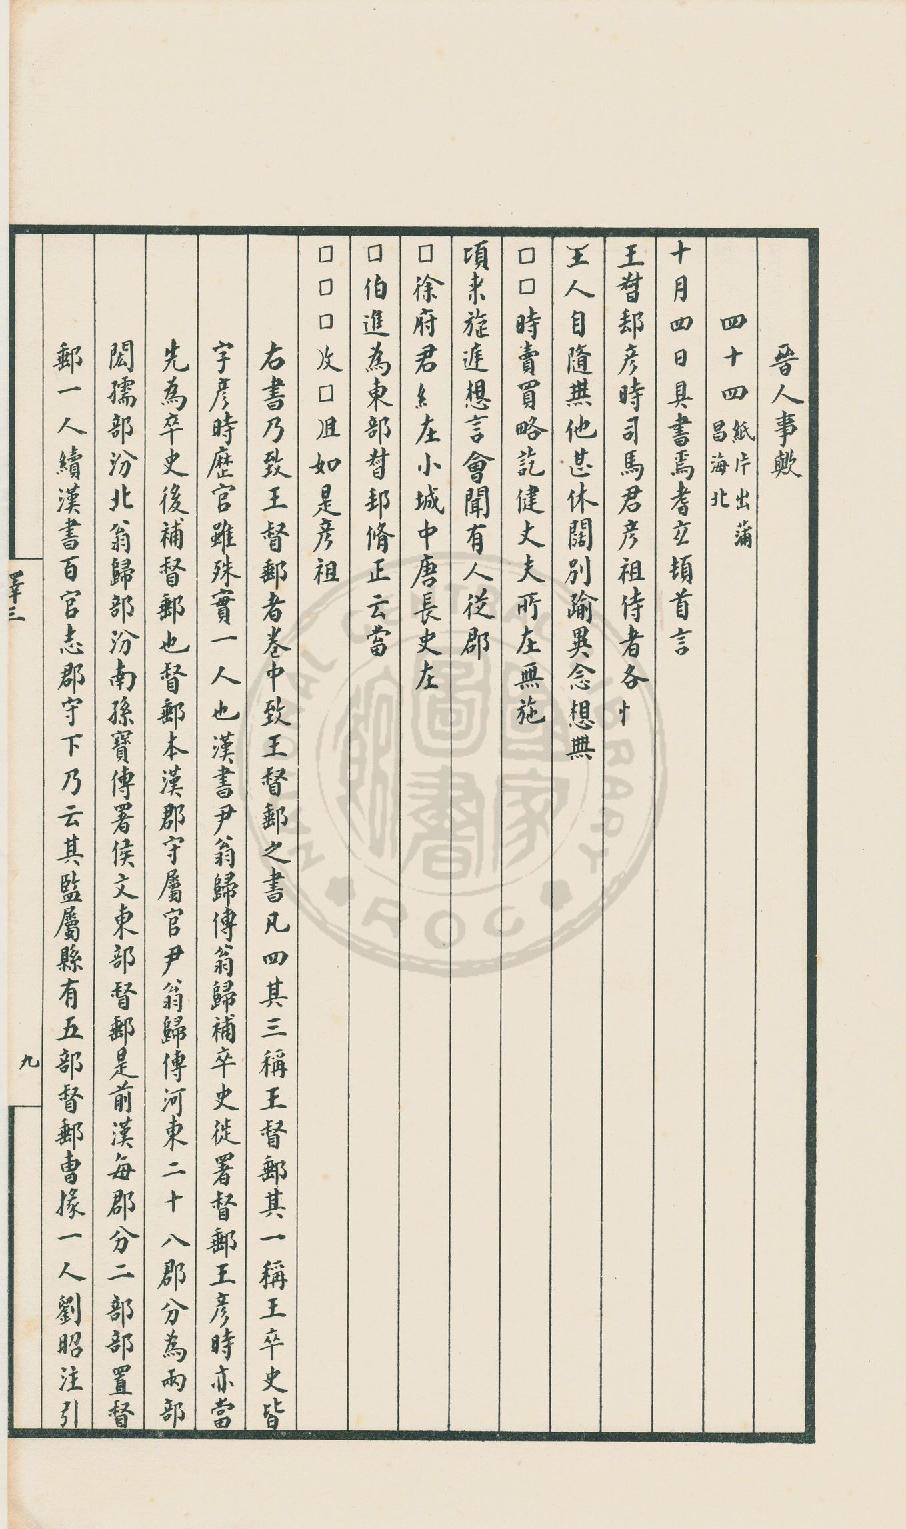 晉人事歟
四十四 紙片出蒲
昌海北
十月四日具書焉耆玄頓首言
王督郵彥時司馬君彥祖侍者各
王人自隨無他甚休闊別踰異念想無
□□時賣買略訖健丈夫所在無施
頃來旋進想言會聞有人從郡
□徐府君在小城中唐長史在
□伯進為東部督郵脩正云當
□□□□如是彥祖
右書乃致王督郵者卷中致王督郵之書凡四其三稱王督郵其一稱王卒史皆
字彥時歷官雖殊實一人也漢書尹翁歸傳翁歸補卒史徙署督郵王彥時亦當
先為卒史後補督郵也督郵本漢郡守屬官尹翁歸傳河東二十八郡分為兩部
閎孺部汾北翁歸部汾南孫寶傳署侯文東部督郵是前漢每郡分二部部置督
郵一人續漢書百官志郡守下乃云其監屬縣有五部督郵曹掾一人劉昭注引
釋三
九
NATIONAL CENTRAL LIBRARY
ROC
國家圖書館